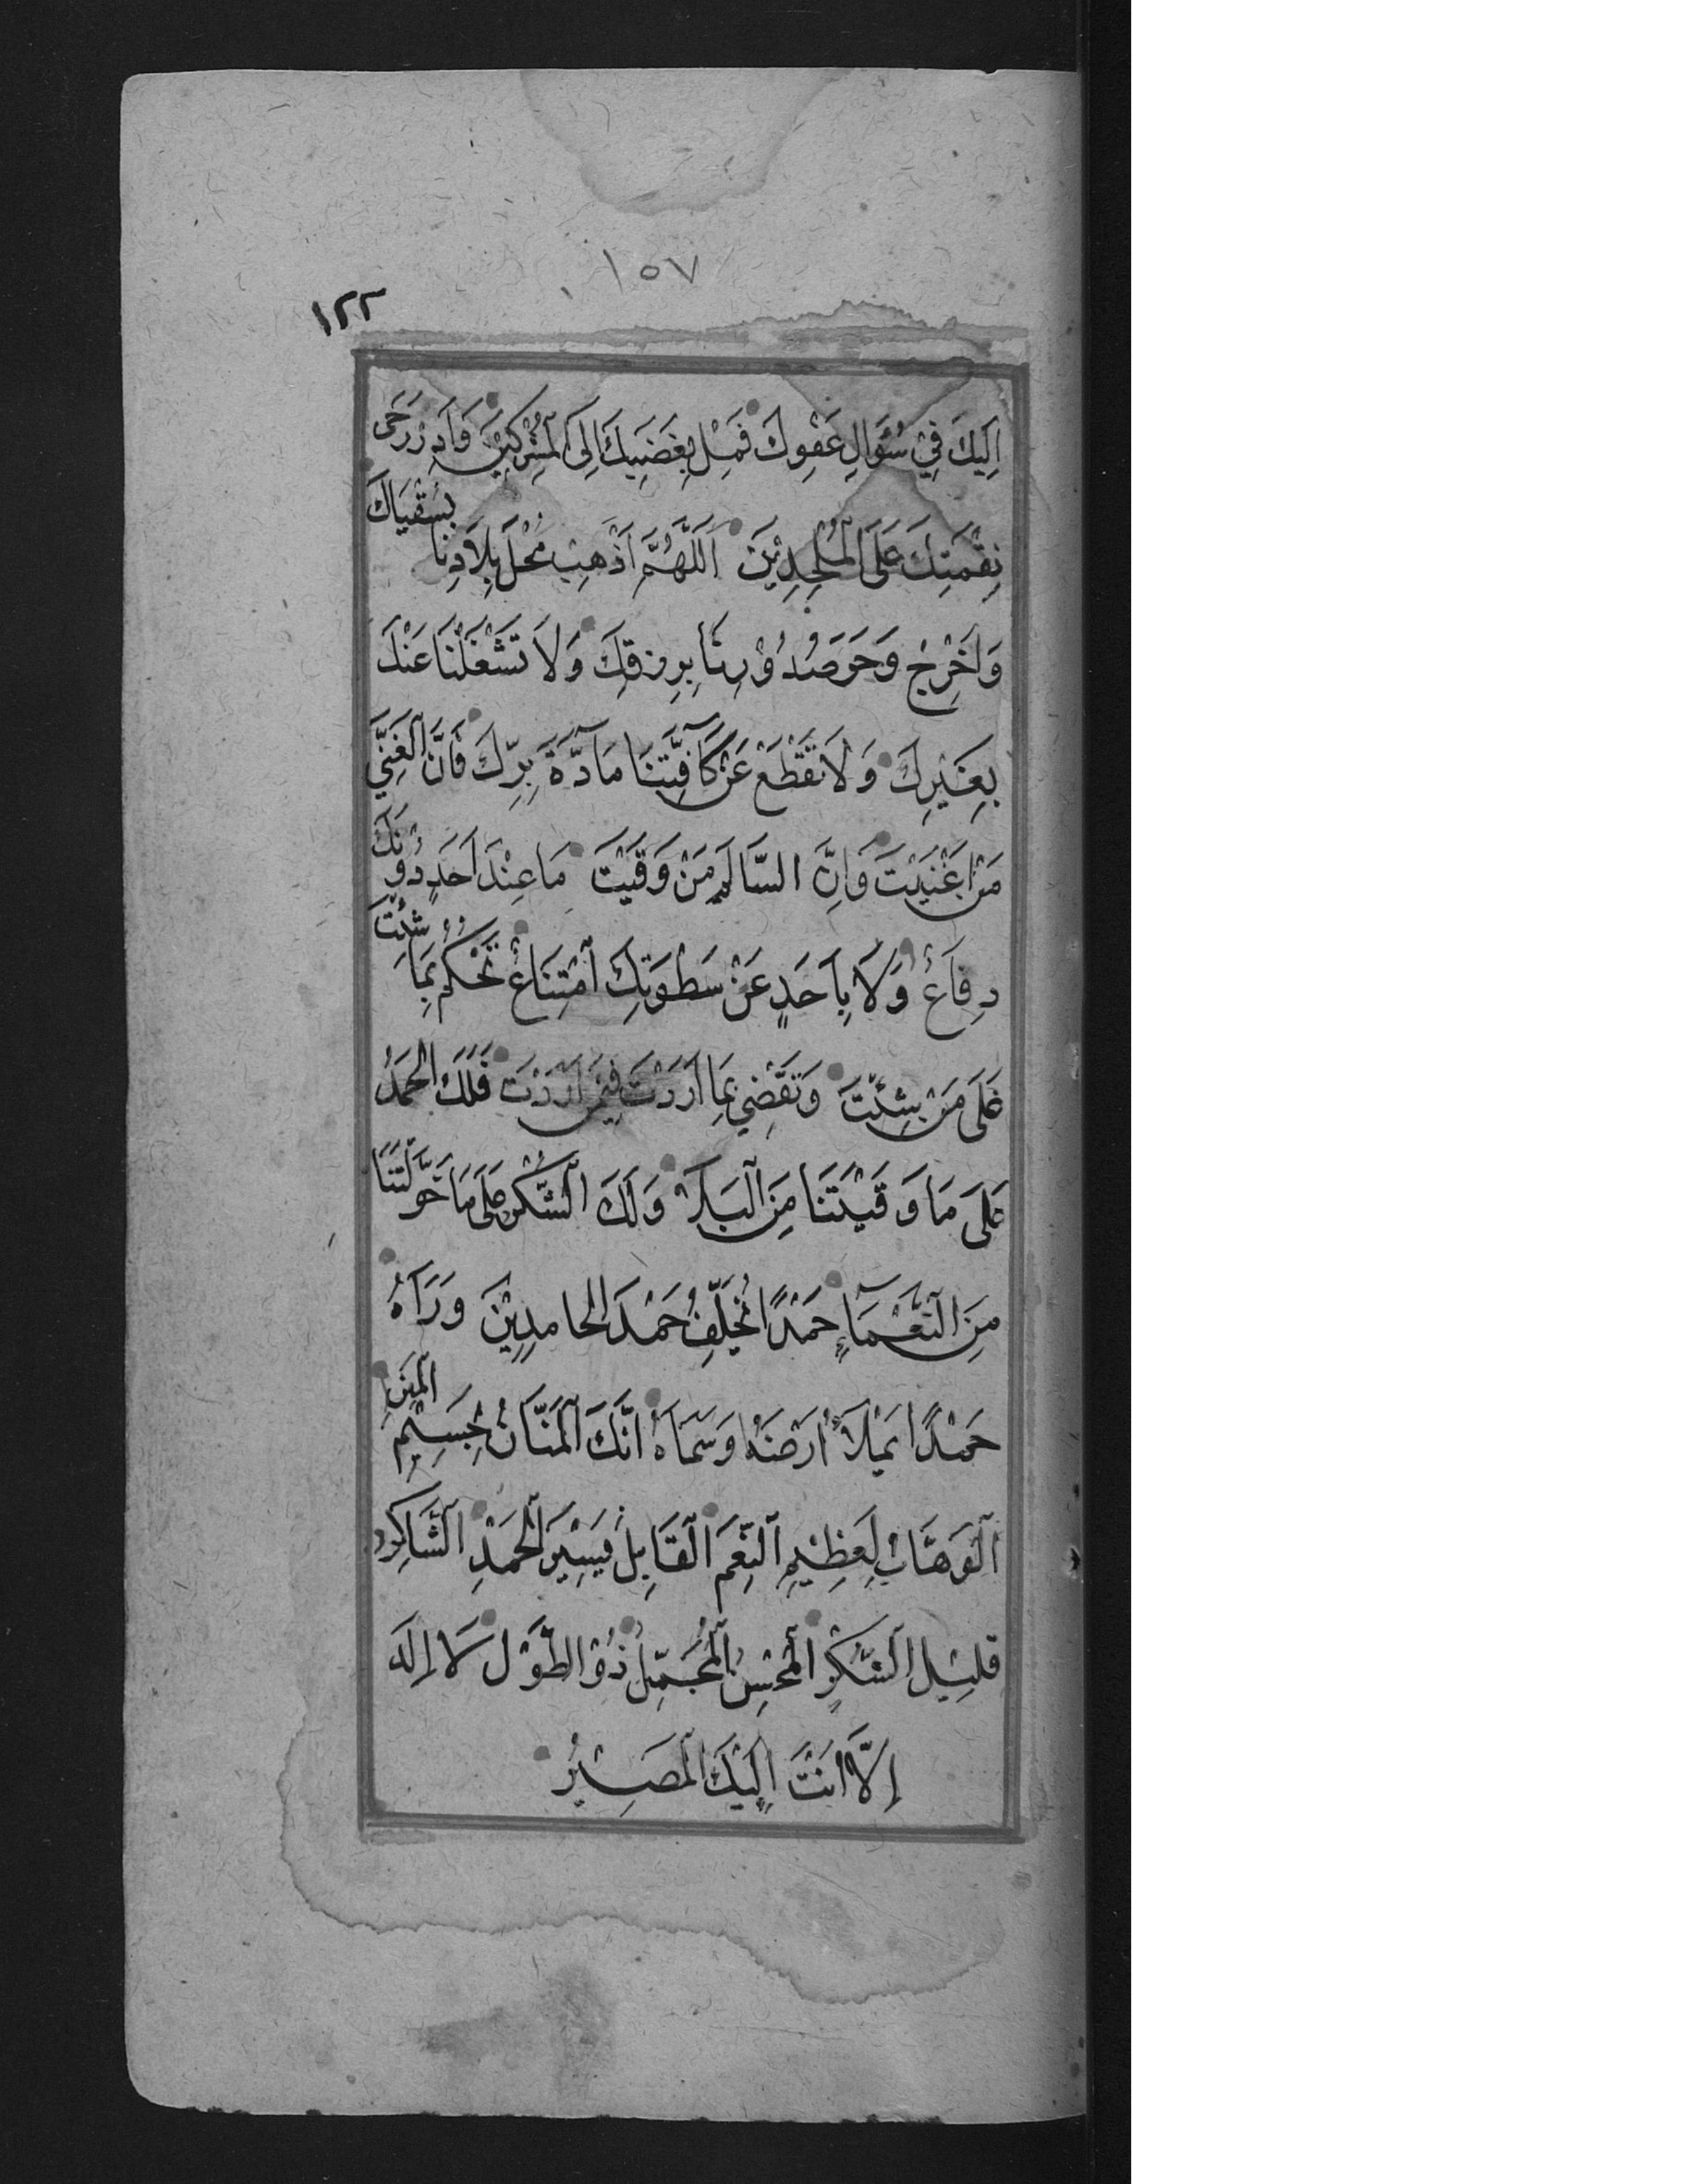 ١٥٧
١٢٢
اِلَيكَ فِيْ سُؤَالِ عَفْوِكَ فَمِلْ بِغَضَبِكَ اِلَى الْمُشْرِكِيْنَ وَاَدِرْ رَحَى
نِقْمَتِكَ عَلَى الْمُلْحِدِيْنَ اَللّٰهُمَّ اَذْهِبْ مَحْلَ بِلَادِنَا بِسُقْيَاكَ
وَاَخْرِجْ وَحَرَ صُدُوْرِنَا بِرِزْقِكَ وَلَا تَشْغَلْنَا عَنْكَ
بِغَيْرِكَ وَلَا تَقْطَعْ عَنْ كَافَّتِنَا مَآدَّةَ بِرِّكَ فَاِنَّ الْغَنِيَّ
مَنْ اَغْنَيْتَ وَاِنَّ السَّالِمَ مَنْ وَقَيْتَ مَا عِنْدَ اَحَدٍ دُوْنَكَ
دِفَاعٌ وَلَا بِاَحَدٍ عَنْ سَطْوَتِكَ امْتِنَاعٌ تَحْكُمُ بِمَا شِئْتَ
عَلَى مَنْ شِئْتَ وَتَقْضِي بِمَا اَرَدْتَ فِيْمَنْ اَرَدْتَ فَلَكَ الْحَمْدُ
عَلَى مَا وَقَيْتَنَا مِنَ الْبَلَاۤءِ وَلَكَ الشُّكْرُ عَلَى مَا خَوَّلْتَنَا
مِنَ النَّعْمَاۤءِ حَمْدًا يُخَلِّفُ حَمْدَ الْحَامِدِيْنَ وَرَاءَهُ
حَمْدًا يَمْلَأُ اَرْضَهُ وَسَمَاءَهُ اِنَّكَ الْمَنَّانُ بِجَسِيْمِ الْمِنَنِ
الْوَهَّابُ لِعَظِيْمِ النِّعَمِ الْقَابِلُ يَسِيْرَ الْحَمْدِ الشَّاكِرُ
قَلِيْلَ الشُّكْرِ الْمُحْسِنُ الْمُجْمِلُ ذُوْ الطَّوْلِ لَا اِلٰهَ
اِلَّا اَنْتَ اِلَيْكَ الْمَصِيْرُ